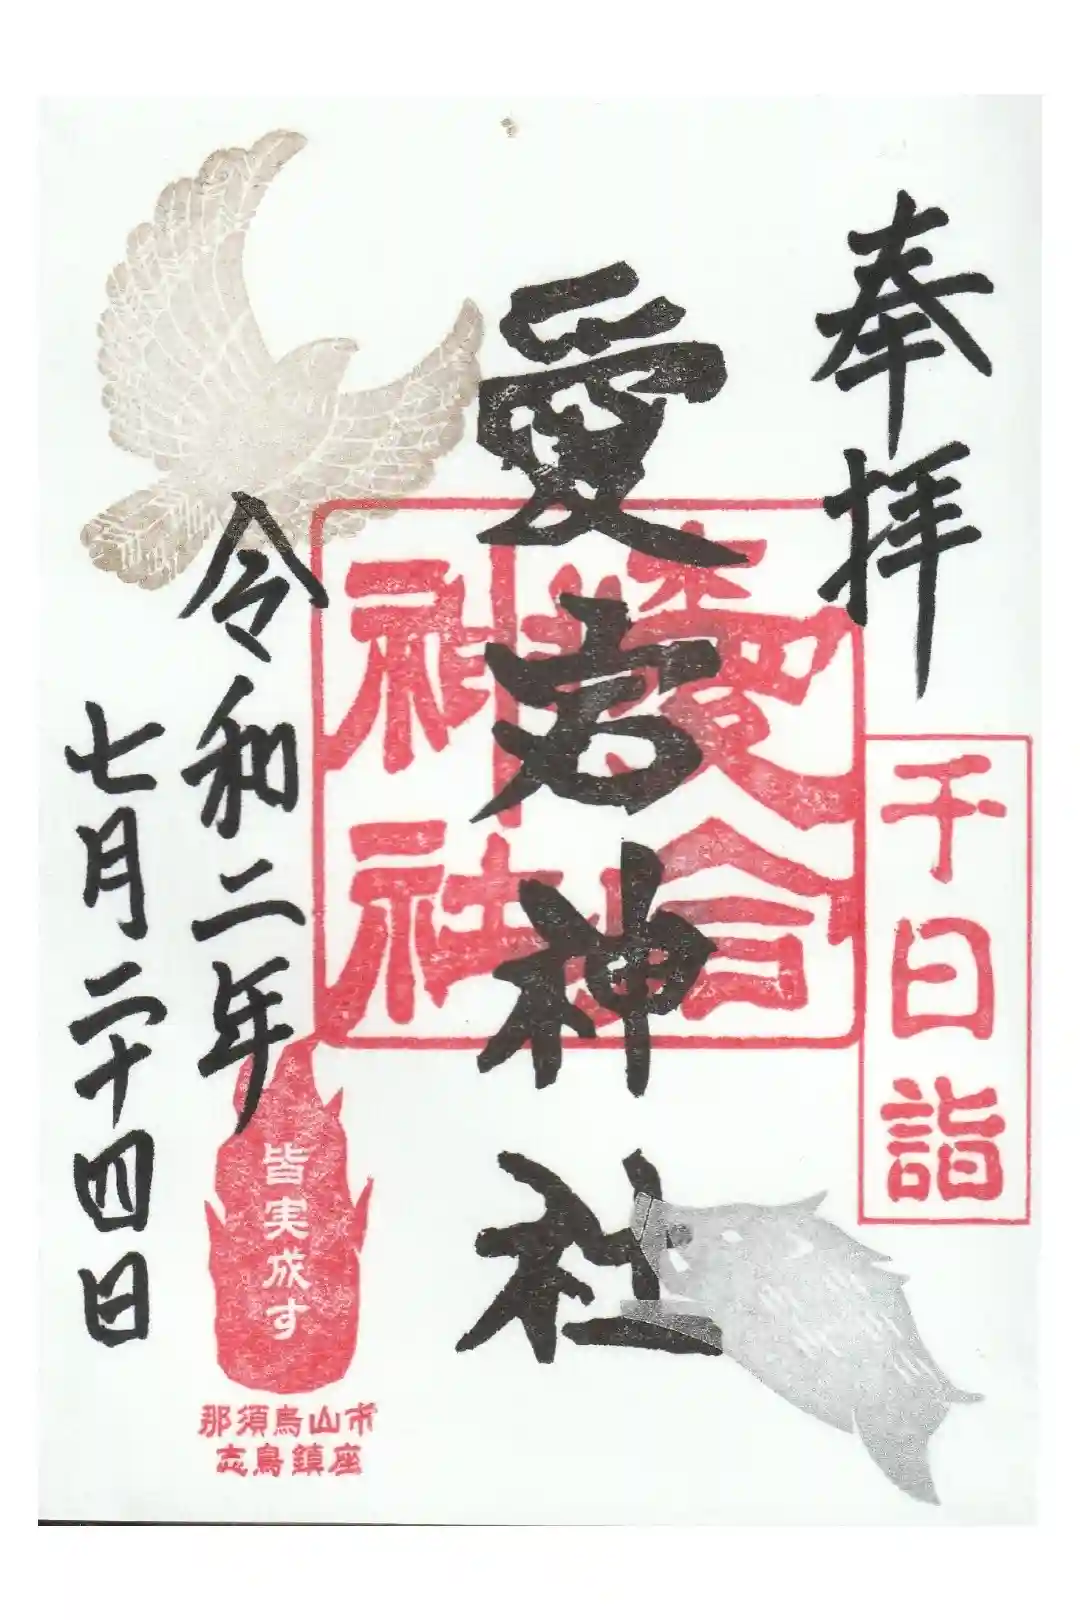 奉拝
千日詣
愛宕神社
愛宕
神社
令和二年
七月二十四日
皆実成す
那須烏山市
志鳥鎮座